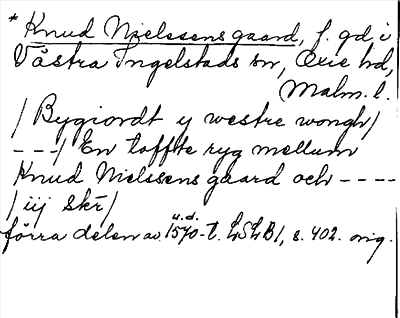 * Knud Nielssens gaard, f. gd i
Västra Ingelstads sn, Oxie hd,
Malm. l.
/ Bygiordt y westre wongh/
---/ En toffte ryg mellum
Knud Nielssens gaard och ----
/ iij skr/
förra delen av u.d. 1570-t. LSLB1, s. 402. orig.